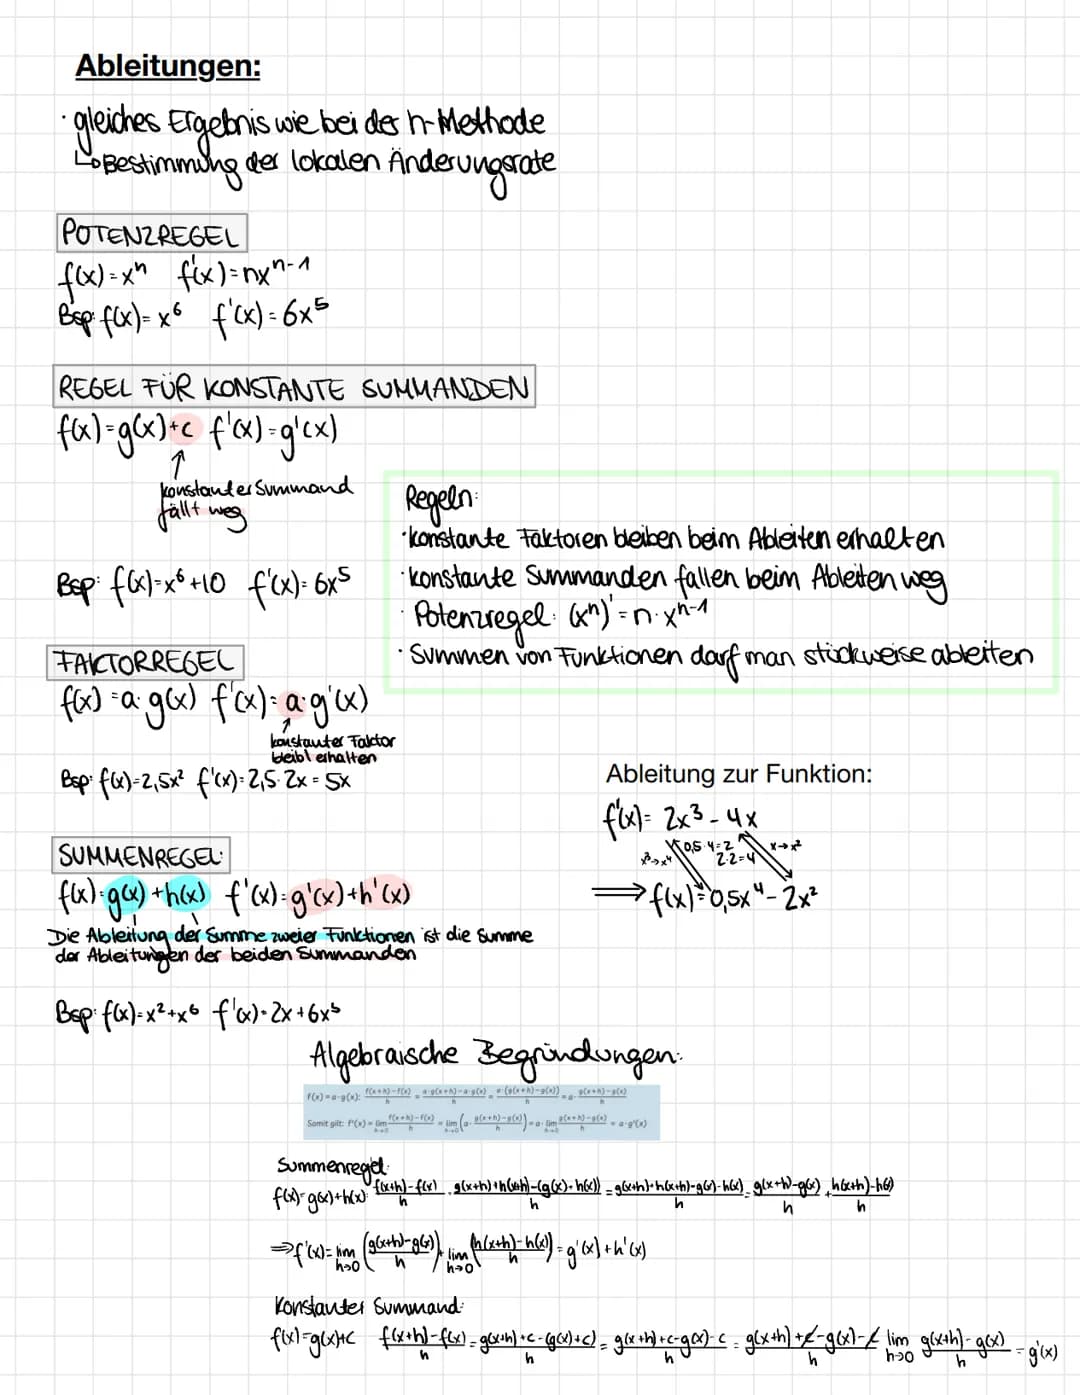 Ableitungen:
· gleiches Ergebnis wie bei der h-Methode
↳ Bestimmung der lokalen Änderungsrate
POTENZREGEL
f(x)=xⁿ f'(x)=nxⁿ⁻¹
Bsp: f(x)=x⁶ f'(x)=6x⁵
REGEL FÜR KONSTANTE SUMMANDEN
f(x)=g(x)+c f'(x)=g'(x)
↑
konstanter Summand
fällt weg
Bsp: f(x)=x⁶+10 f'(x)=6x⁵
Regeln:
·konstante Faktoren bleiben beim Ableiten erhalten
·konstante Summanden fallen beim Ableiten weg
· Potenzregel: (xⁿ)'=n·xⁿ⁻¹
· Summen von Funktionen darf man stückweise ableiten
FAKTORREGEL
f(x)=a·g(x) f'(x)=a·g'(x)
↑
konstanter Faktor
bleibt erhalten
Bsp: f(x)=2,5x² f'(x)=2,5·2x=5x
Ableitung zur Funktion:
f'(x)= 2x³-4x
x³→x⁴ 0,5·4=2 2·2=4 x→x²
⟹ f(x)=0,5x⁴-2x²
SUMMENREGEL:
f(x)=g(x)+h(x) f'(x)=g'(x)+h'(x)
Die Ableitung der Summe zweier Funktionen ist die Summe
der Ableitungen der beiden Summanden
Bsp: f(x)=x²+x⁶ f'(x)=2x+6x⁵
Algebraische Begründungen:
f(x)=a·g(x): (f(x+h)-f(x))/h = (a·g(x+h)-a·g(x))/h = (a·(g(x+h)-g(x)))/h = a·(g(x+h)-g(x))/h
Somit gilt: f'(x)= lim h→0 (f(x+h)-f(x))/h = lim h→0 (a·(g(x+h)-g(x))/h) = a·lim h→0 (g(x+h)-g(x))/h = a·g'(x)
Summenregel:
f(x)=g(x)+h(x): (f(x+h)-f(x))/h = (g(x+h)+h(x+h)-(g(x)+h(x)))/h = (g(x+h)+h(x+h)-g(x)-h(x))/h = (g(x+h)-g(x))/h + (h(x+h)-h(x))/h
⇒f'(x)= lim h→0 ((g(x+h)-g(x))/h) + lim h→0 ((h(x+h)-h(x))/h) = g'(x)+h'(x)
Konstanter Summand:
f(x)=g(x)+c (f(x+h)-f(x))/h = (g(x+h)+c-(g(x)+c))/h = (g(x+h)+c-g(x)-c)/h = (g(x+h)+c-g(x)-c)/h lim h→0 (g(x+h)-g(x))/h = g'(x)